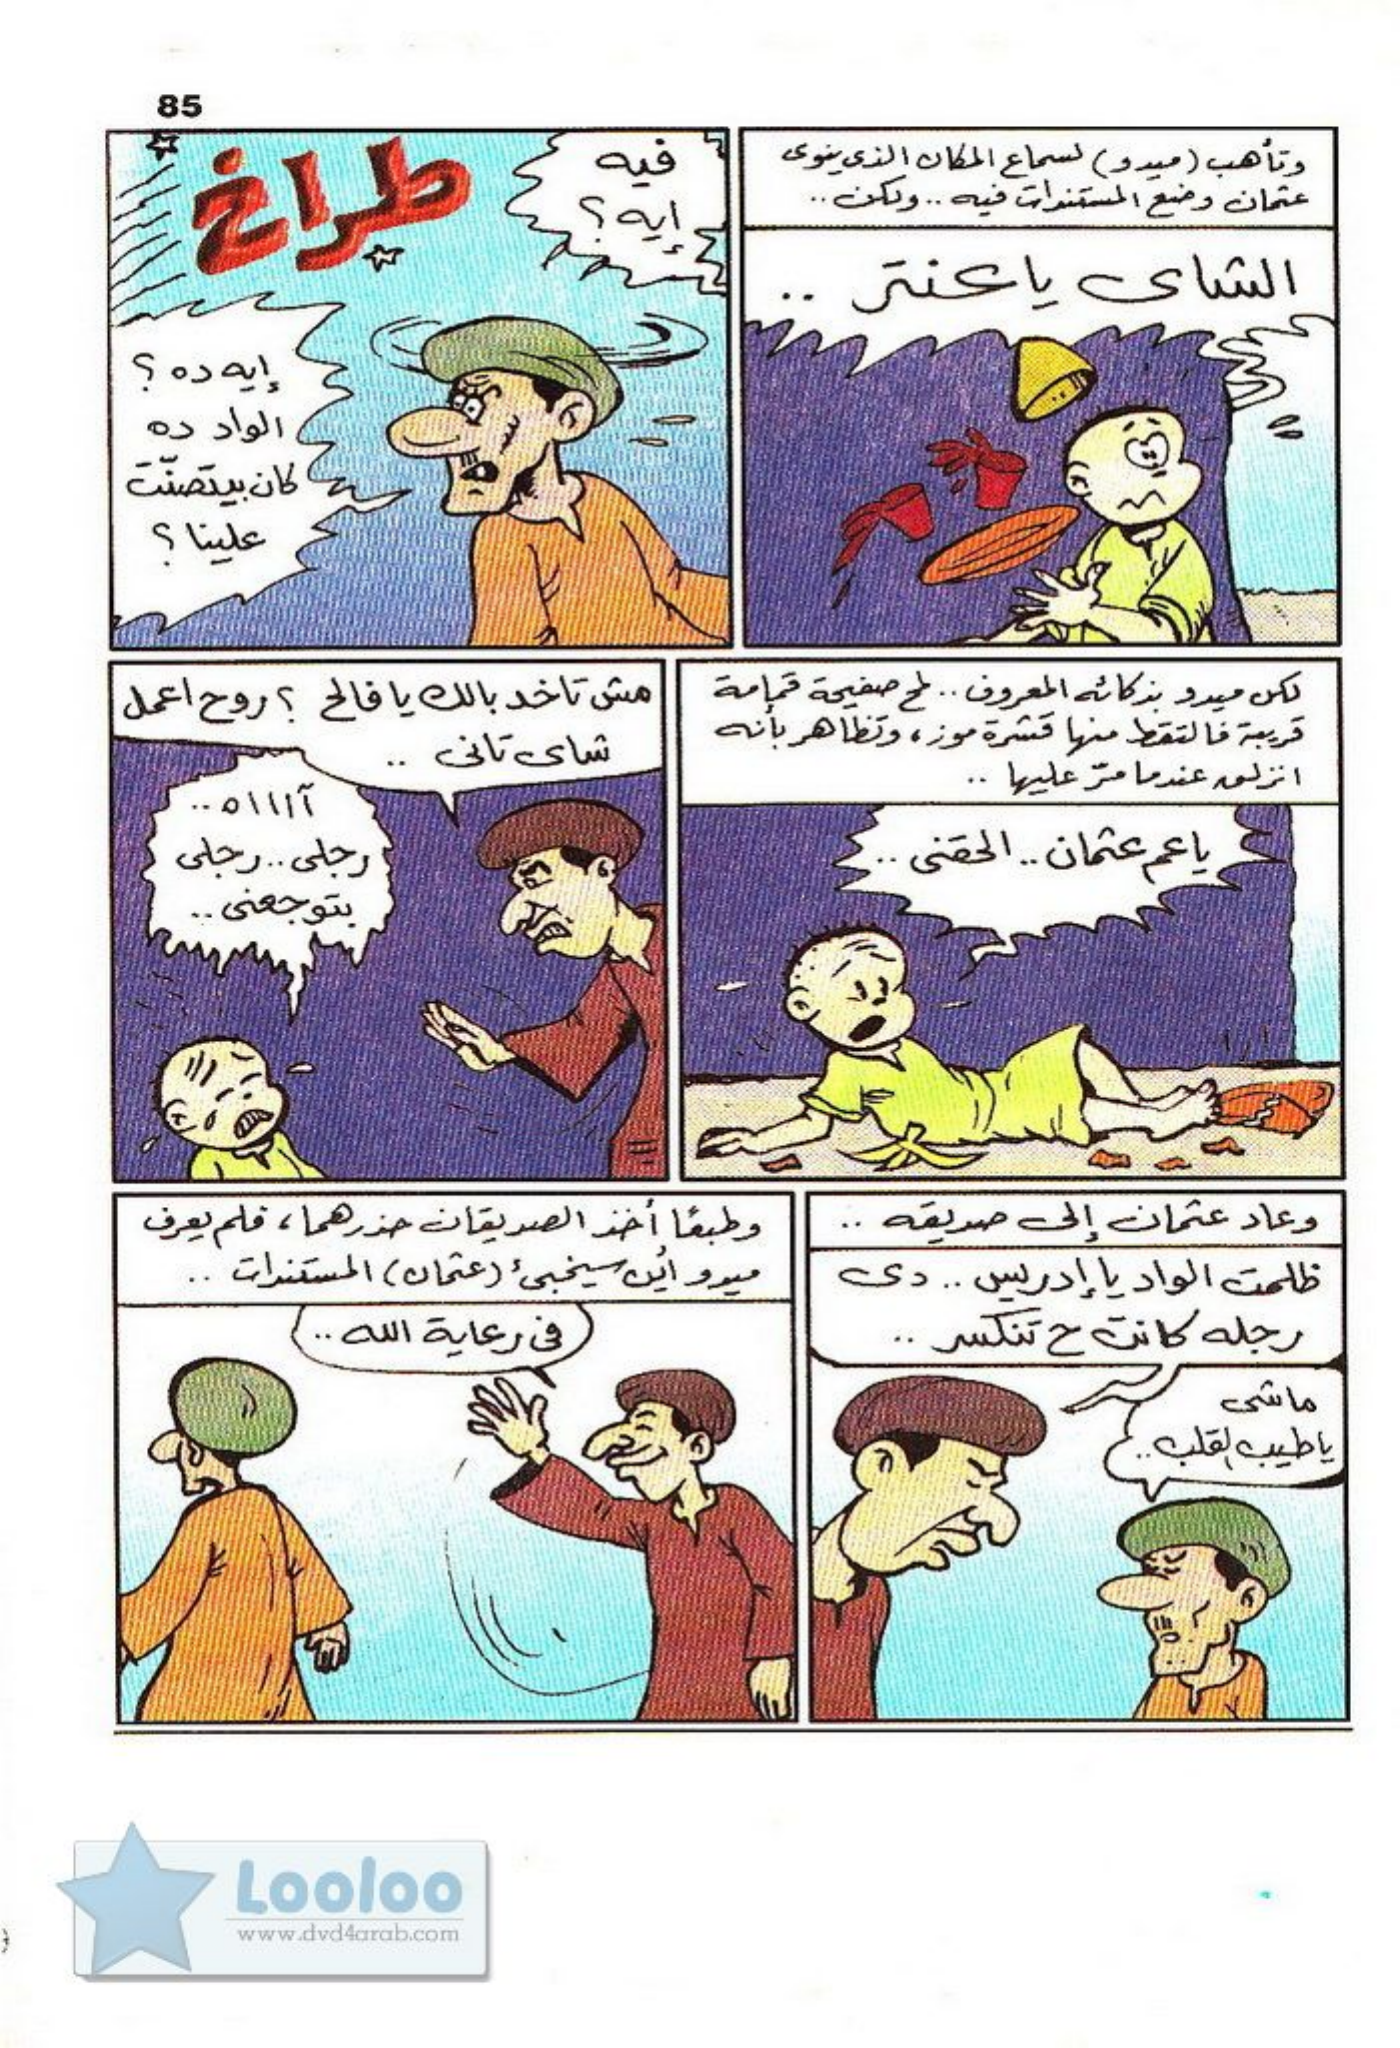 85
وتأهب (ميدو) لسماع المكان الذى ينوى
عثمان وضع المستندات فيه .. ولكن ..
الشاى ياعنتر ..
طراخ
فيه
إيه ؟
إيه ده ؟
الواد ده
كان بيتصنّت
علينا ؟
لكن ميدو بذكائه المعروف .. لمح صفيحة قمامة
قريبة فالتقط منها قشرة موز ، وتظاهر بأنه
انزلق عندما مرّ عليها ..
ياعم عثمان .. الحقنى ..
مش تاخد بالك يا فالح ؟ روح اعمل
شاى تانى ..
آااااه ..
رجلى .. رجلى
بتوجعنى ..
وعاد عثمان إلى صديقه ..
ظلمت الواد يا إدريس .. دى
رجله كانت ح تنكسر ..
ماشى
ياطيب القلب ..
وطبعًا أخذ الصديقان حذرهما ، فلم يعرف
ميدو أين سيخبئ (عثمان) المستندات ..
فى رعاية الله ..
Looloo
www.dvd4arab.com